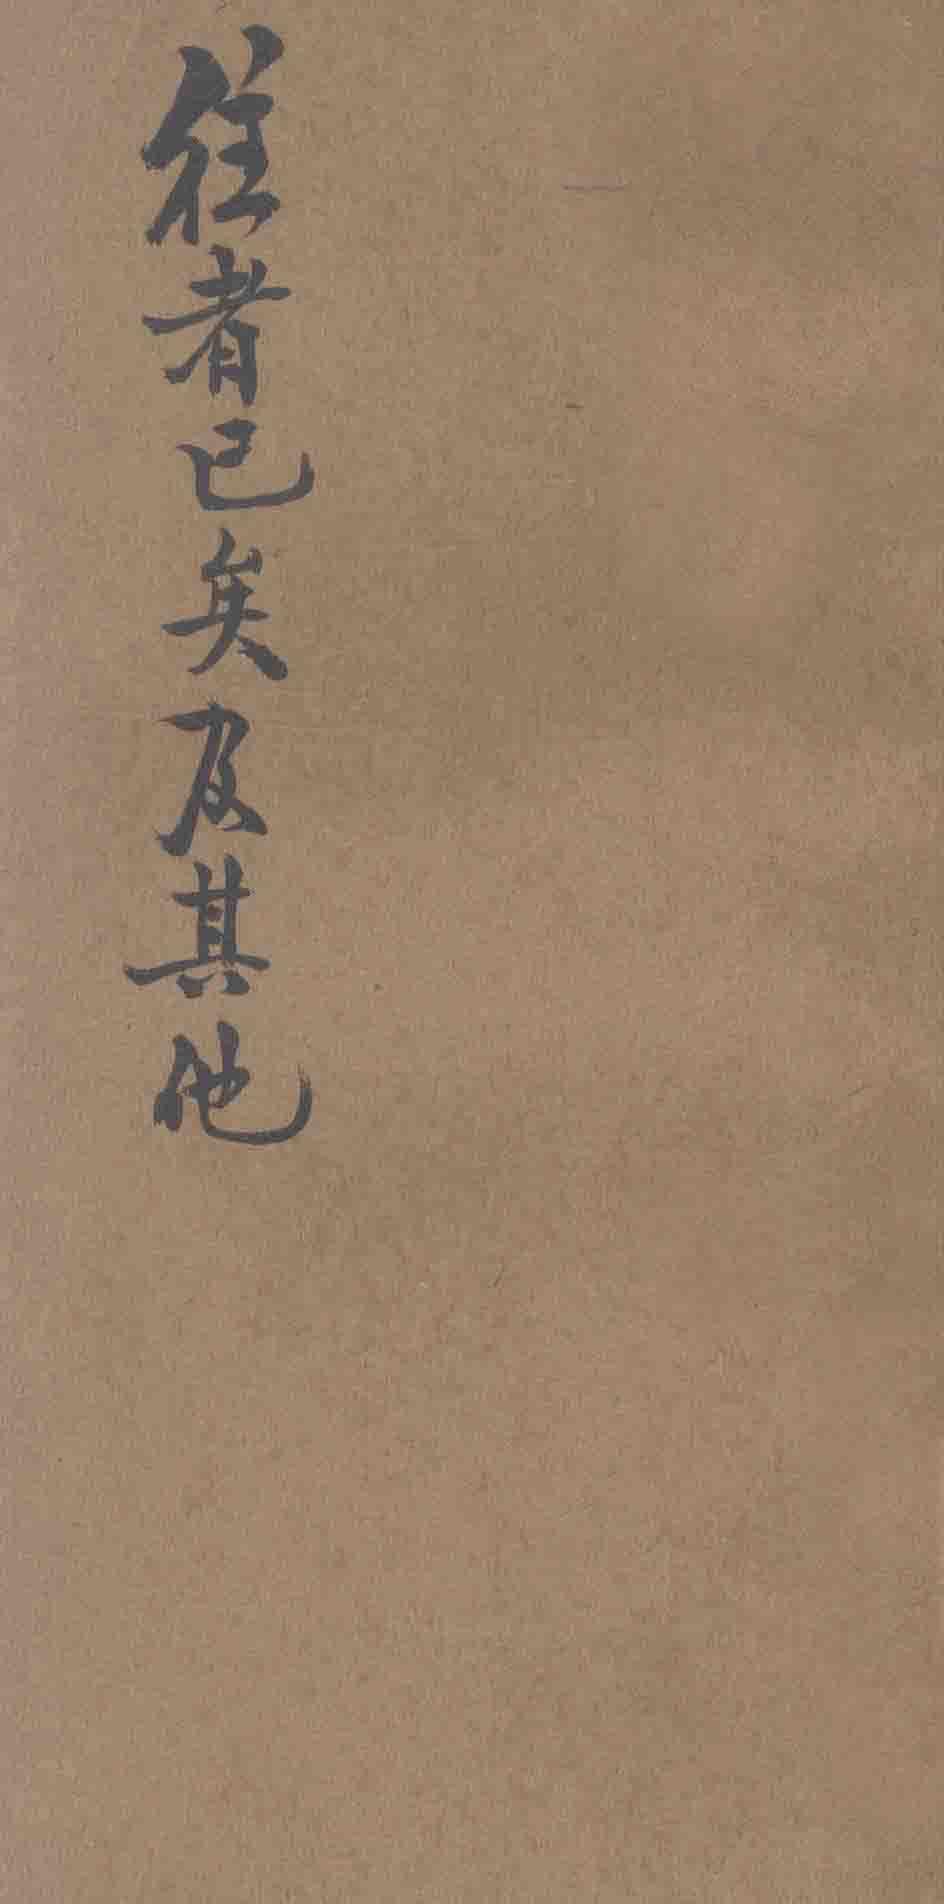 往者已矣及其他